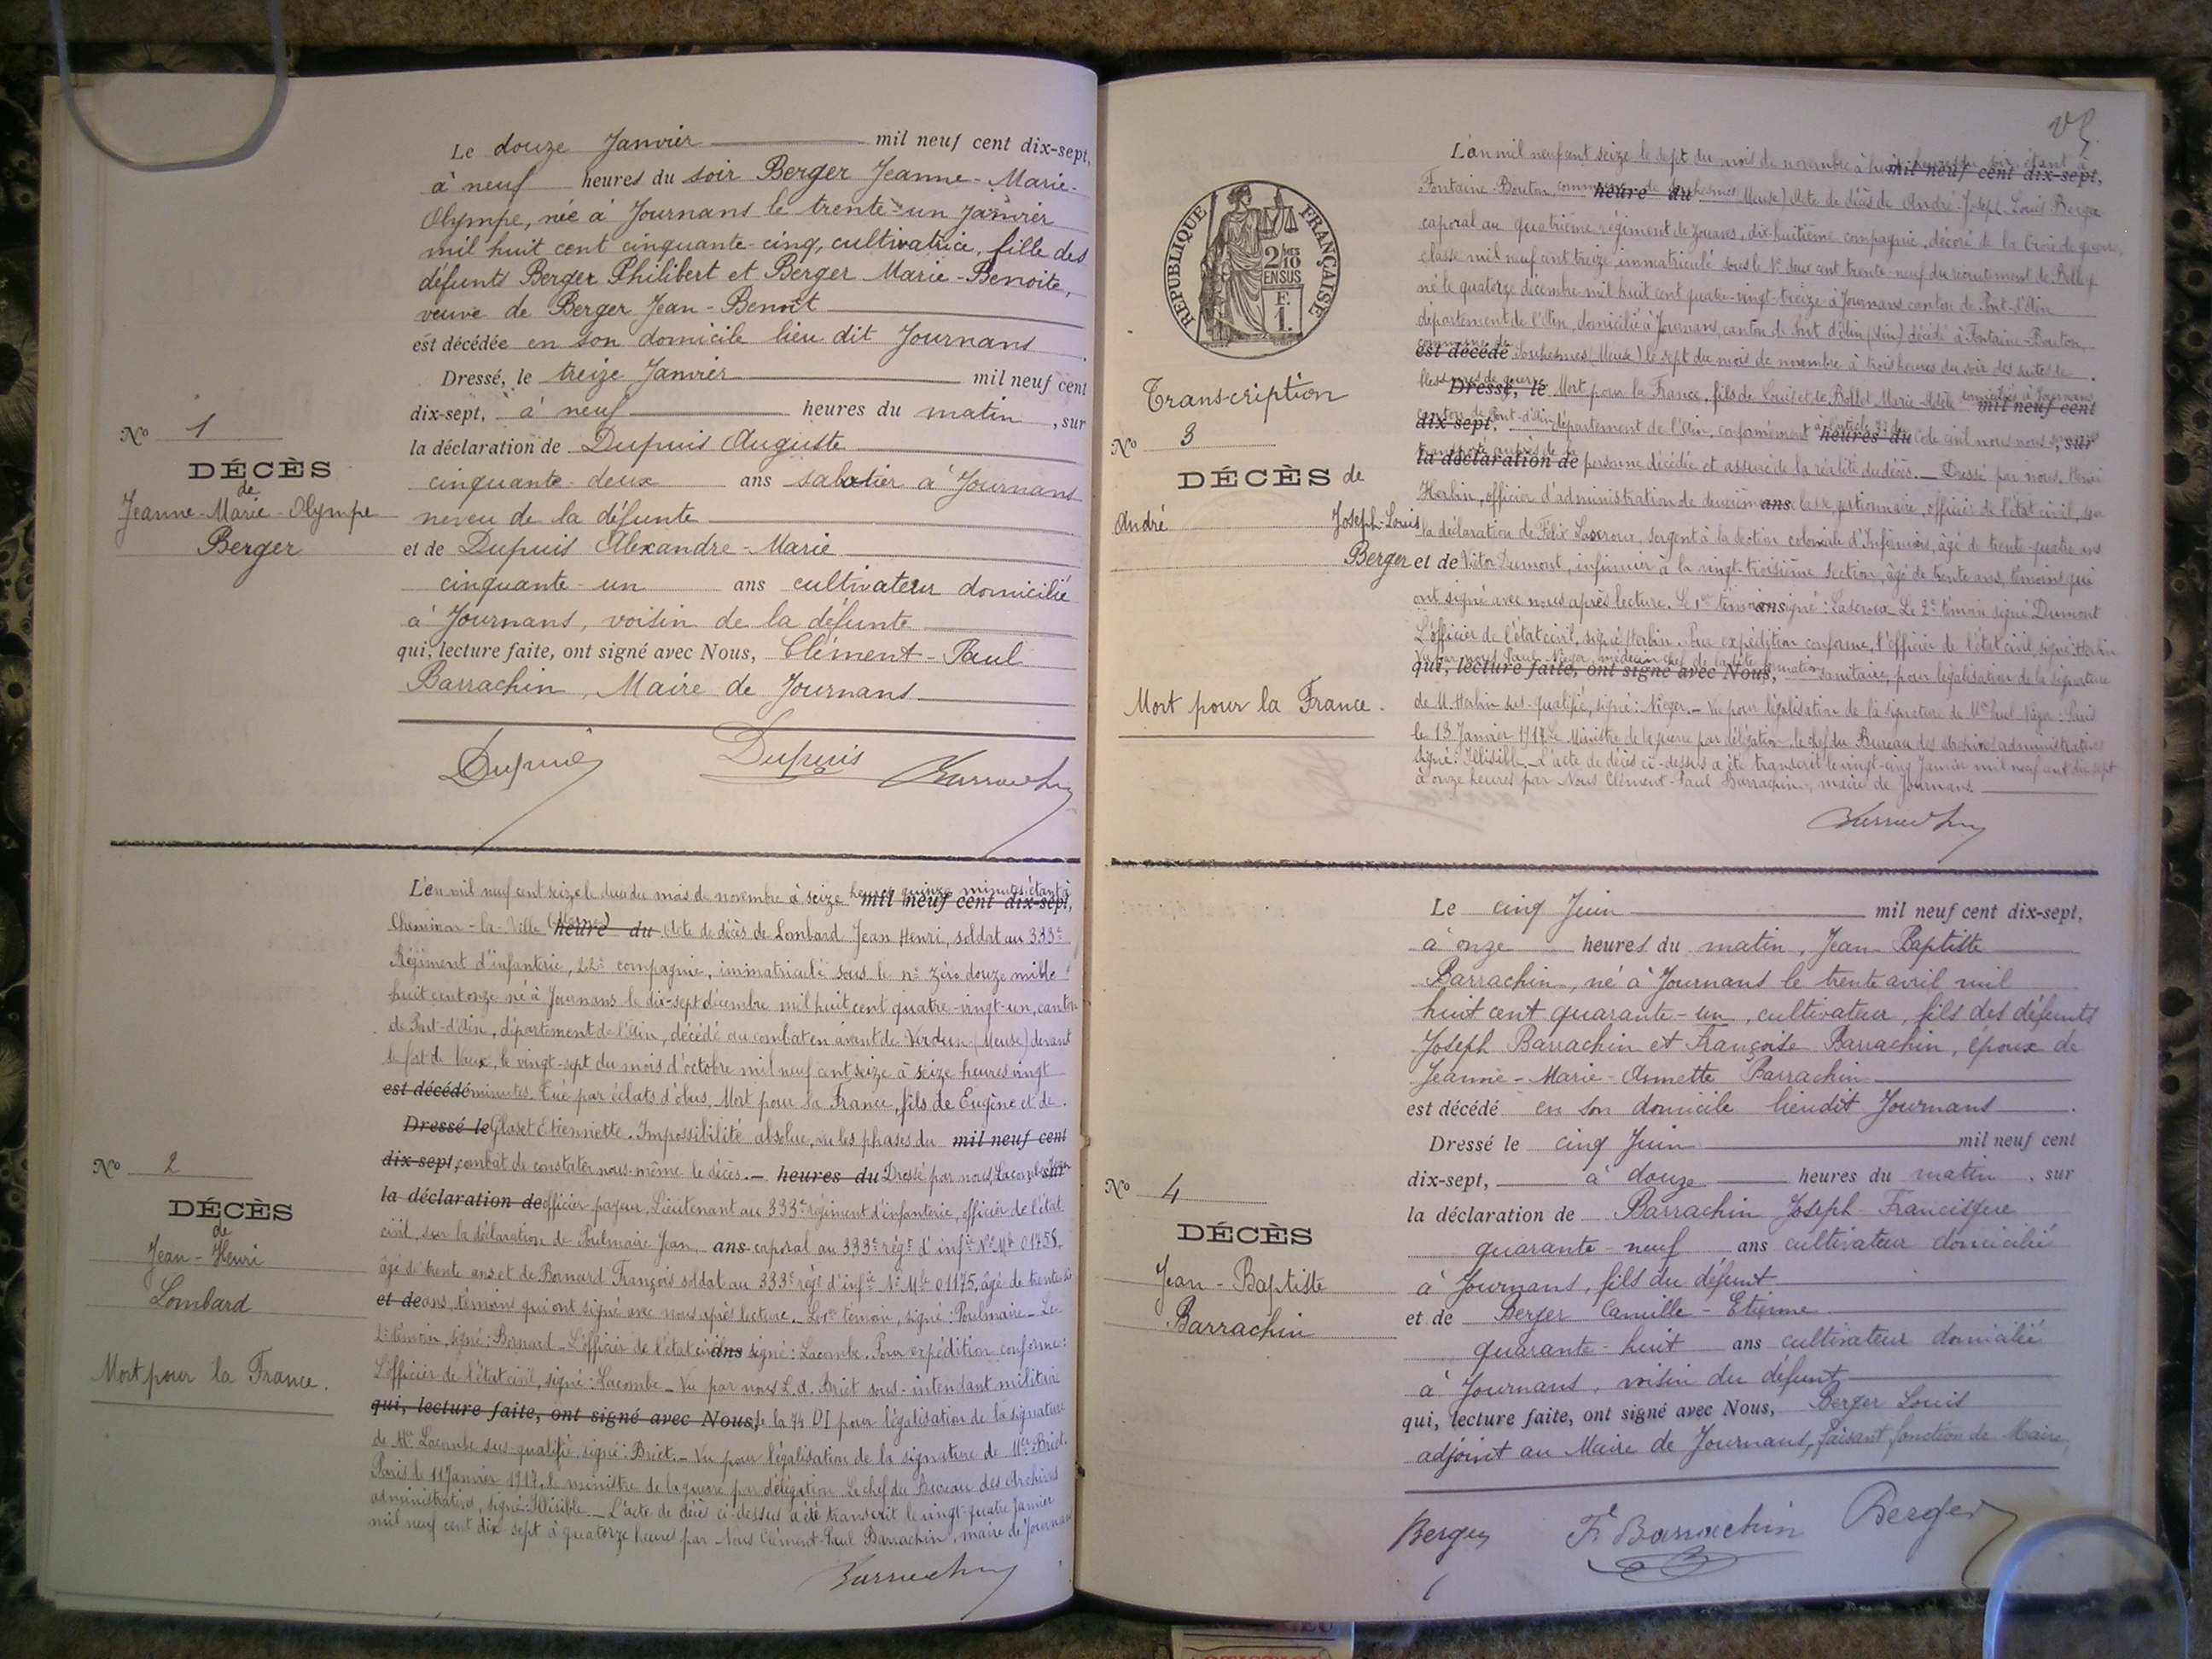 Le douze Janvier mil neuf cent dix-sept,
à neuf heures du soir Berger Jeanne-Marie-
Olympe, née à Journans le trente-un janvier
mil huit cent cinquante-cinq, cultivatrice, fille des
défunts Berger Philibert et Berger Marie-Benoite,
veuve de Berger Jean-Benoît
est décédée en son domicile lieu dit Journans
Dressé, le treize Janvier mil neuf cent
dix-sept, à neuf heures du matin, sur
la déclaration de Dupuis Auguste
cinquante-deux ans sabotier à Journans
neveu de la défunte
et de Dupuis Alexandre-Marie
cinquante-un ans cultivateur domicilié
à Journans, voisin de la défunte
qui, lecture faite, ont signé avec Nous, Clément-Paul
Barrachin, Maire de Journans
Nº 1
DÉCÈS
de
Jeanne-Marie-Olympe
Berger
Dupuis Dupuis Barrachin
L'an mil neuf cent seize le deux du mois de novembre à seize heures quinze minutes, étant à mil neuf cent dix-sept,
Cheminon-la-Ville (Marne) heure du Acte de décès de Lombard Jean Henri, soldat au 333e
Régiment d'infanterie, 22e compagnie, immatriculé sous le nº zéro douze mille
huit cent onze né à Journans le dix-sept décembre mil huit cent quatre-vingt-un, canton
de Pont-d'Ain, département de l'Ain, décédé au combat en avant de Verdun (Meuse) devant
le fort de Vaux, le vingt-sept du mois d'octobre mil neuf cent seize à seize heures vingt
est décédé minutes. Tué par éclats d'obus, Mort pour la France, fils de Eugène et de
Dressé le Etiennette. Impossibilité absolue, vu les phases du mil neuf cent
dix-sept, combat de constater nous-même le décès. — heures du Dressé par nous, Lacombe sur
la déclaration de officier payeur, Lieutenant au 333e régiment d'infanterie, officier de l'état
civil, sur la déclaration de Poulmaire Jean, ans caporal au 333e régt d'infie Nº Mle 01758,
âgé de trente ans et de Bornard François soldat au 333e régt d'infie Nº Mle 01175, âgé de trente
et de ans, témoins qui ont signé avec nous après lecture. Le 1er témoin, signé: Poulmaire - Le
2e témoin, signé: Bornard - L'officier de l'état civil ans signé: Lacombe. Pour expédition conforme:
L'officier de l'état civil, signé: Lacombe - Vu par nous L. A. Briet sous-intendant militaire
qui, lecture faite, ont signé avec Nous, de la 74 DI pour légalisation de la signature
de Mr Lacombe sus-qualifié, signé: Briet. - Vu pour légalisation de la signature de Mr Briet.
Paris le 11 Janvier 1917. Le ministre de la guerre par délégation Le chef du Bureau des Archives
administratives, signé: Illisible. - L'acte de décès ci-dessus a été transcrit le vingt-quatre Janvier
mil neuf cent dix-sept à quatorze heures par Nous Clément-Paul Barrachin, maire de Journans
Nº 2
DÉCÈS
de
Jean-Henri
Lombard
Mort pour la France.
Barrachin
RÉPUBLIQUE FRANÇAISE
2/10
EN SUS
F.
1.
L'an mil neuf cent seize le sept du mois de novembre à huit heures du soir étant à mil neuf cent dix-sept,
Fontaine-Bouton, commune de heure du Souhesmes (Meuse) Acte de décès de André-Joseph-Louis Berger
caporal au quatrième régiment de zouaves, dix-huitième compagnie, décoré de la Croix de guerre,
classe mil neuf cent treize, immatriculé sous le Nº deux cent trente-neuf du recrutement de Belley
né le quatorze décembre mil huit cent quatre-vingt-treize à Journans canton de Pont-d'Ain
département de l'Ain, domicilié à Journans, canton de Pont d'Ain (Ain) décédé à Fontaine-Bouton,
commune de
est décédé Souhesmes (Meuse) le sept du mois de novembre à trois heures du soir des suites de
blessures de guerre Dressé, le Mort pour la France, fils de Louis et de Marie domiciliés à Journans mil neuf cent
canton de Pont-d'Ain dix-sept, département de l'Ain, conformément à l'article 77 du heures du Code civil nous nous sommes, sur
transporté auprès de la
la déclaration de personne décédée et assuré de la réalité du décès. — Dressé par nous,
Herbin, officier d'administration de deuxième ans classe gestionnaire, officier de l'état civil, sur
la déclaration de Félix Lascroux, sergent à la section coloniale d'Infirmiers, âgé de trente-quatre ans
et de Victor Dumont, infirmier à la vingt-troisième section, âgé de trente ans, témoins qui
ont signé avec nous après lecture. Le 1er témoin ans signé: Lascroux. Le 2e témoin signé Dumont
L'officier de l'état civil, signé Herbin. Pour expédition conforme, l'officier de l'état civil, signé Herbin
Vu par nous Paul Nieger, médecin chef de la formation
qui, lecture faite, ont signé avec Nous, sanitaire, pour légalisation de la signature
de M. Herbin sus-qualifié, signé: Nieger. — Vu pour légalisation de la signature de Mr Paul Nieger. Paris
le 13 Janvier 1917 Le Ministre de la guerre par délégation, le chef du Bureau des Archives administratives
signé: Illisible. — L'acte de décès ci-dessus a été transcrit le vingt-cinq Janvier mil neuf cent dix-sept
à onze heures par Nous Clément-Paul Barrachin, maire de Journans
Transcription
Nº 3
DÉCÈS de
André Joseph-Louis
Berger
Mort pour la France.
Barrachin
Le cinq Juin mil neuf cent dix-sept,
à onze heures du matin, Jean Baptiste
Barrachin, né à Journans le trente avril mil
huit cent quarante-un, cultivateur, fils des défunts
Joseph Barrachin et Françoise Barrachin, époux de
Jeanne-Marie-Annette Barrachin
est décédé en son domicile lieudit Journans
Dressé le cinq Juin mil neuf cent
dix-sept, à douze heures du matin, sur
la déclaration de Barrachin Joseph Francisque
quarante-neuf ans cultivateur domicilié
à Journans, fils du défunt
et de Berger Camille-Etienne
quarante-huit ans cultivateur domicilié
à Journans, voisin du défunt
qui, lecture faite, ont signé avec Nous, Berger Louis
adjoint au Maire de Journans, faisant fonction de Maire,
Nº 4
DÉCÈS
Jean-Baptiste
Barrachin
Berger Fr Barrachin Berger